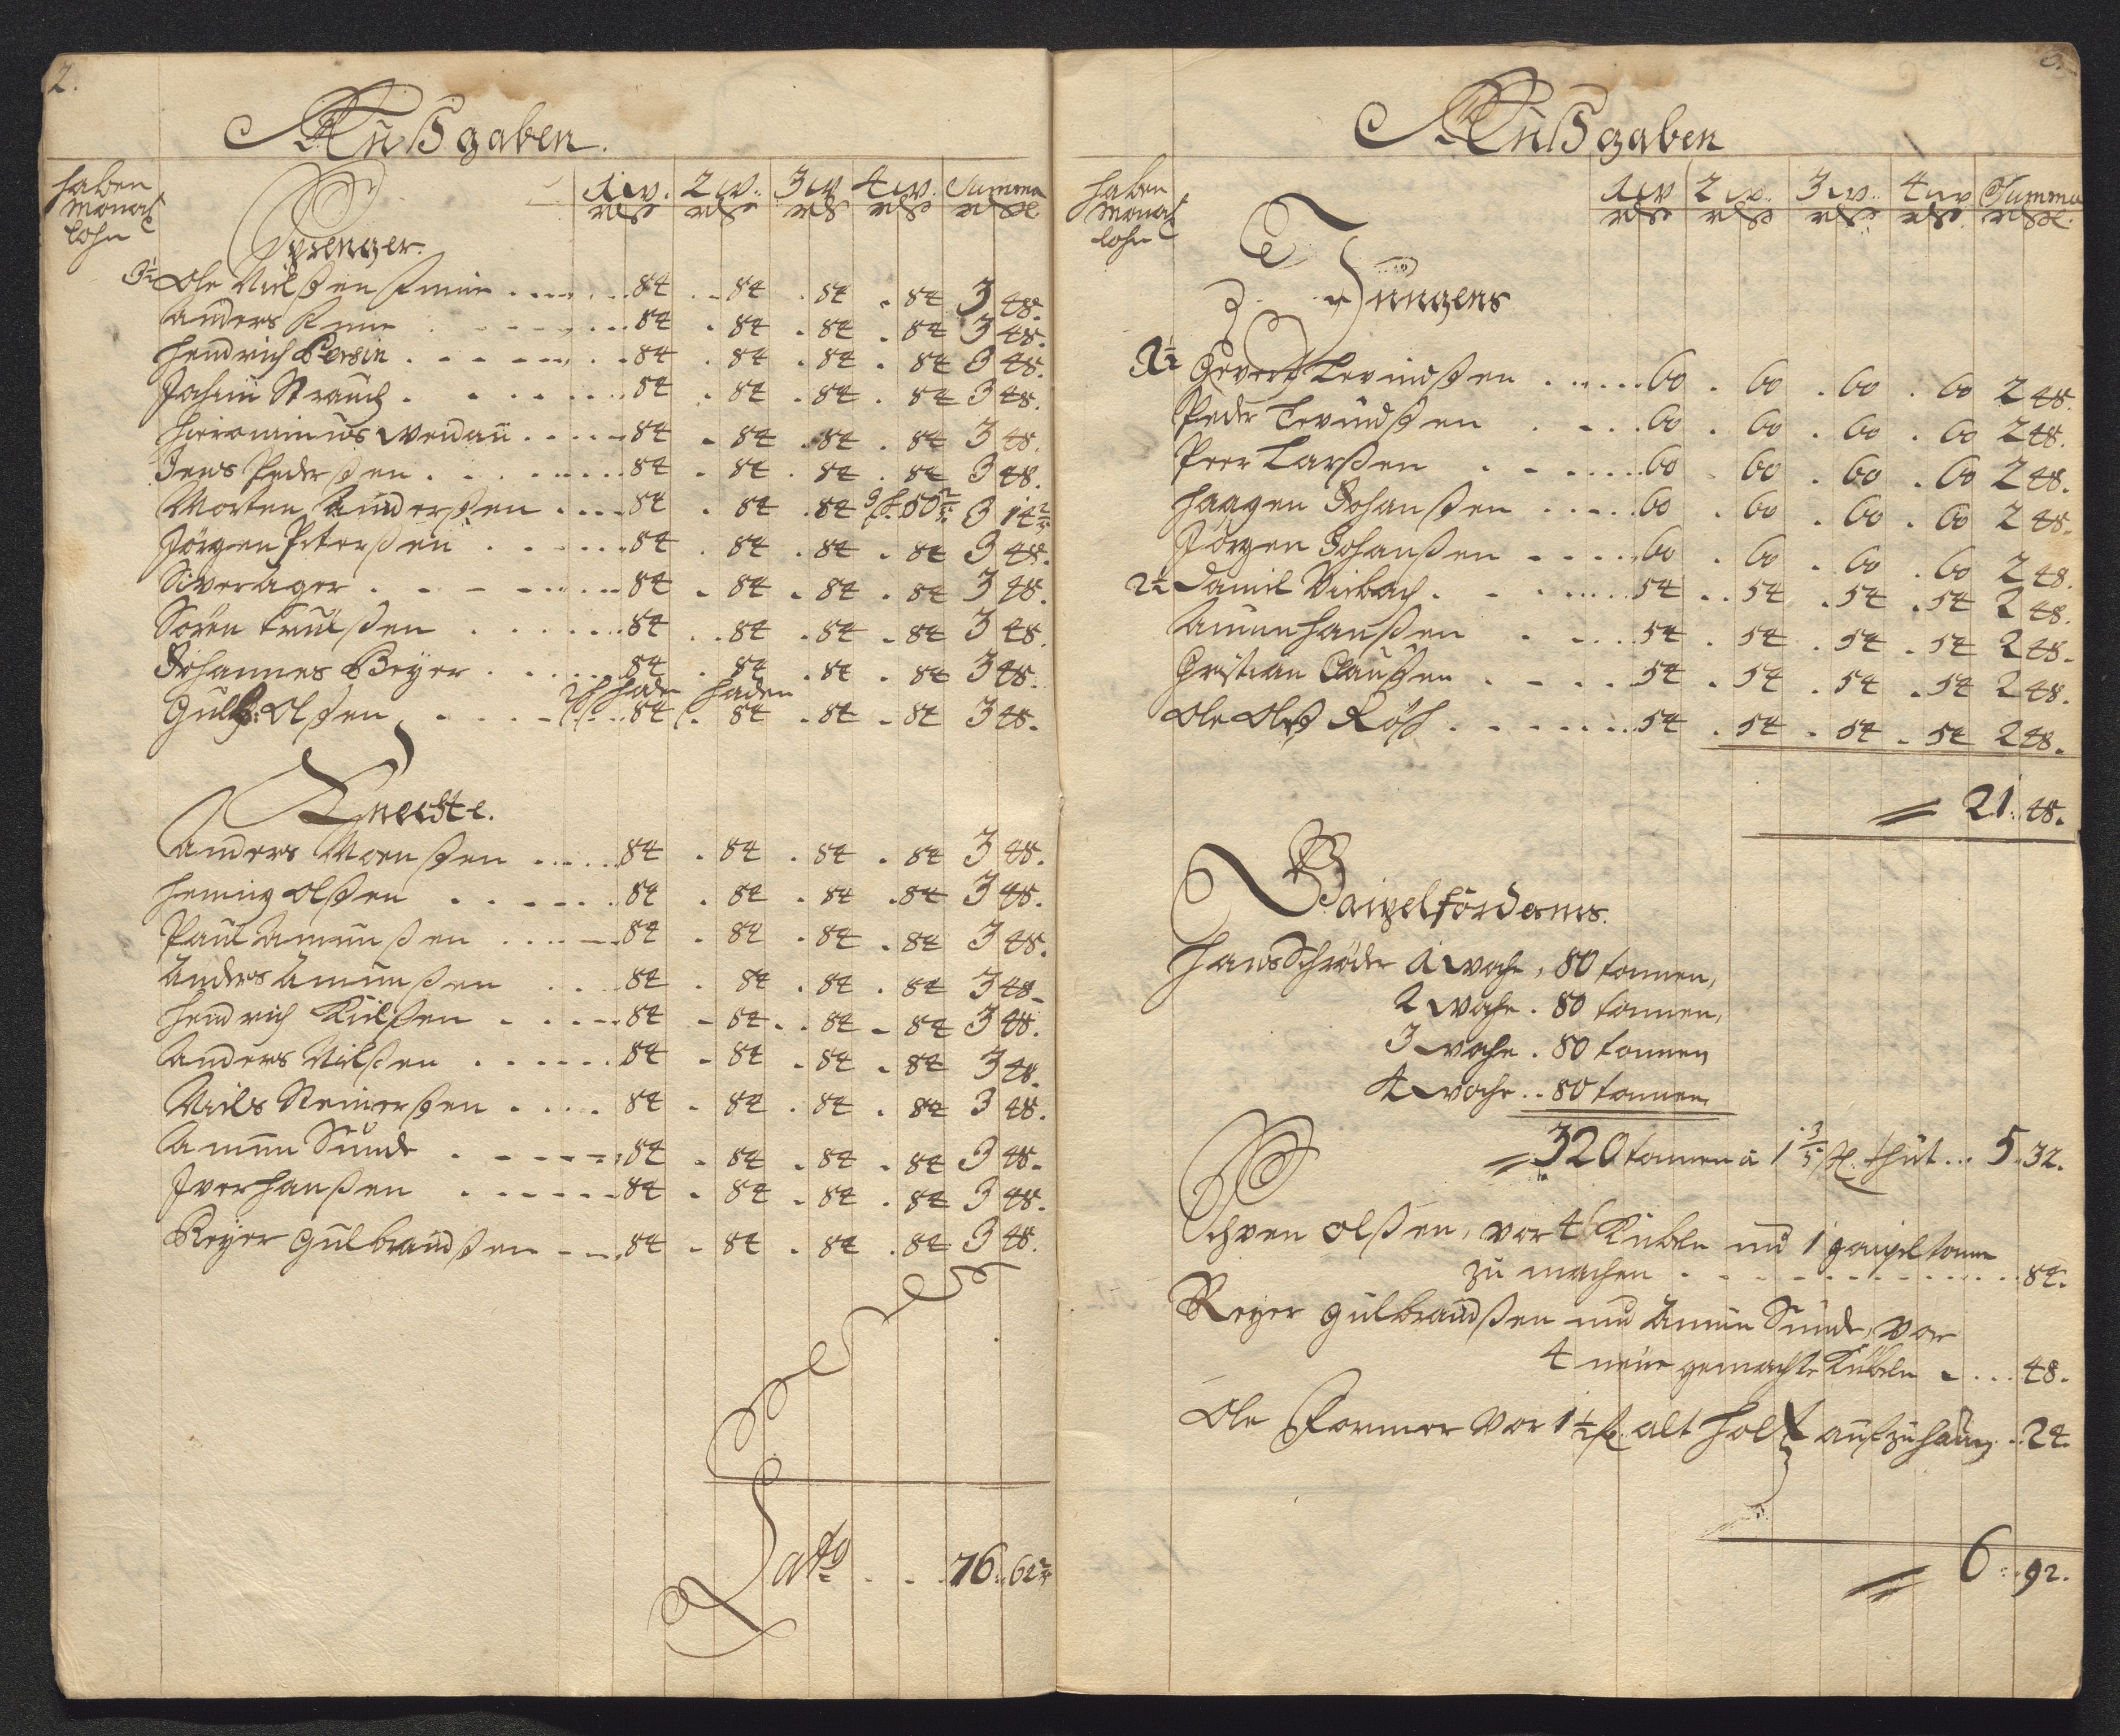 2.
Außgaben.
haben
Monat
lohn
1 w. 2 w. 3 w 4 w. Summa
Sprenger.
3½ Ole Nielßen . . . 84 . 84 . 84 . 84 3 48.
Anders . . . 84 . 84 . 84 . 84 3 48.
Hendrich Persin . . . 84 . 84 . 84 . 84 3 48.
Jochim Strauch . . . 84 . 84 . 84 . 84 3 48.
Hieronimus Wendau . . . 84 . 84 . 84 . 84 3 48.
Jens Pederßen . . . 84 . 84 . 84 . 84 3 48.
Morten Anderßen . . . 84 . 84 . 84 3 14
Jörgen Peterßen . . . 84 . 84 . 84 . 84 3 48.
Siver Ager . . . 84 . 84 . 84 . 84 3 48.
Sören Trulßen . . . 84 . 84 . 84 . 84 3 48.
Johannes Beyer . . . 84 . 84 . 84 . 84 3 48.
Gulb: Olßen . . . 84 . 84 . 84 . 84 3 48.
Knechte.
Anders Moenßen . . . 84 . 84 . 84 . 84 3 48.
Hennig Olßen . . . 84 . 84 . 84 . 84 3 48.
Paul Amunßen . . . 84 . 84 . 84 . 84 3 48.
Anders Amunßen . . . 84 . 84 . 84 . 84 3 48.
Hendrich Nielßen . . . 84 . 84 . 84 . 84 3 48.
Anders Nielßen . . . 84 . 84 . 84 . 84 3 48.
Niels Steinerßen . . . 84 . 84 . 84 . 84 3 48.
Amun Sunde . . . 84 . 84 . 84 . 84 3 48.
Iver Hanßen . . . 84 . 84 . 84 . 84 3 48.
Reyer Gulbrandßen . . . 84 . 84 . 84 . 84 3 48.
Lat. . . . 76. 62
3.
Außgaben
haben
Monat
lohn
1 w 2 w. 3 w. 4 w Summa
Jungens
Gevert Levindßen . . . 60 . 60 . 60 . 60 2 48.
Peder Levindßen . . . 60 . 60 . 60 . 60 2 48.
Peer Larßen . . . 60 . 60 . 60 . 60 2 48.
Haagen Johanßen . . . 60 . 60 . 60 . 60 2 48.
Jörgen Johanßen . . . 60 . 60 . 60 . 60 2 48.
2¼ Daniel Viebach . . . 54 . 54 . 54 . 54 2 48.
Amun Hanßen . . . 54 . 54 . 54 . 54 2 48.
Christian Claußen . . . 54 . 54 . 54 . 54 2 48.
Ole Olß . . . 54 . 54 . 54 . 54 2 48.
= 21. 48.
Gaipelförderns.
Hans Schröder 1 woche, 80 tonnen,
2 woche . 80 tonnen,
3 woche . 80 tonnen
4 woche . . 80 tonnen.
= 320 tonnen à 1 3/5 ß. thut . . . 5. 32.
Schven Olßen, vor 46 Kübeln und 1 gaipel tonne
zu machen . . . 84.
Reyer Gulbrandßen und Amun Sunde, vor
4 neue gemachte Kübeln . . . 48.
Ole Former vor 1½ alt Holtz aufzuhauen . . 24.
= 6. 92.